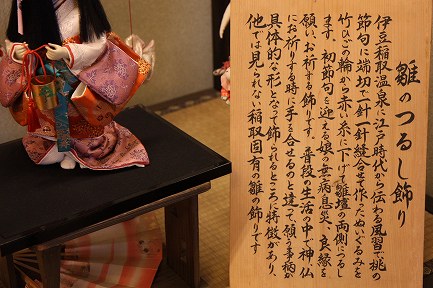 雛のつるし飾り
伊豆稲取温泉に江戸時代から伝わる風習で桃の
節句に端切で一針一針縫合せて作ったぬいぐるみを
竹ひごの輪から赤い糸に下げて雛壇の両側につるし
ます。初節句を迎える娘の無病息災、良縁を
願い、お祈りする飾りです。普段の生活の中で神、仏
にお祈りする時に手を合せるのと違って願う事柄が
具体的な形となって飾られるところに特徴があり、
他では見られない稲取固有の雛の飾りです